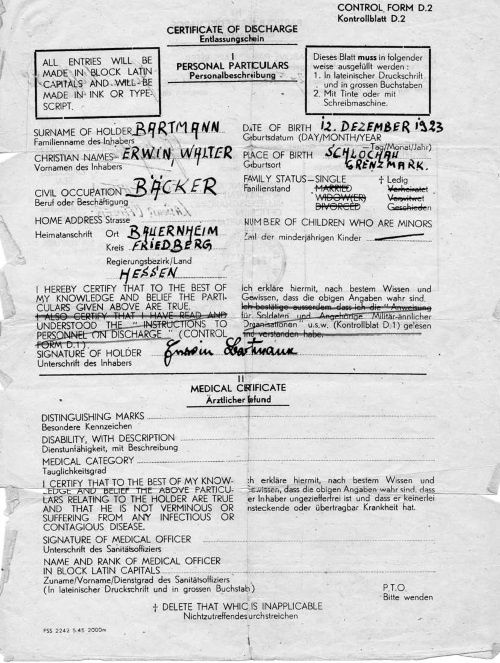 CONTROL FORM D.2
Kontrollblatt D.2
CERTIFICATE OF DISCHARGE
Entlassungschein
I
PERSONAL PARTICULARS
Personalbeschreibung
ALL ENTRIES WILL BE
MADE IN BLOCK LATIN
CAPITALS AND WILL BE
MADE IN INK OR TYPE-
SCRIPT.
Dieses Blatt muss in folgender
weise ausgefüllt werden:
1. In lateinischer Druckschrift
und in grossen Buchstaben
2. Mit Tinte oder mit
Schreibmaschine.
SURNAME OF HOLDER BARTMANN
Familienname des Inhabers
CHRISTIAN NAMES ERWIN WALTER
Vornamen des Inhabers
CIVIL OCCUPATION BÄCKER
Beruf oder Beschäftigung
HOME ADDRESS Strasse
Heimatanschrift Ort BAUERNHEIM
Kreis FRIEDBERG
Regierungsbezirk/Land
HESSEN
DATE OF BIRTH 12. DEZEMBER 1923
Geburtsdatum (DAY/MONTH/YEAR
Tag/Monat/Jahr)
PLACE OF BIRTH SCHLOCHAU
Geburtsort GRENZMARK.
FAMILY STATUS—SINGLE † Ledig
Familienstand MARRIED Verheiratet
WIDOW(ER) Verwitwet
DIVORCED Geschieden
NUMBER OF CHILDREN WHO ARE MINORS
Zahl der minderjährigen Kinder
I HEREBY CERTIFY THAT TO THE BEST OF
MY KNOWLEDGE AND BELIEF THE PARTI-
CULARS GIVEN ABOVE ARE TRUE.
I ALSO CERTIFY THAT I HAVE READ AND
UNDERSTOOD THE "INSTRUCTIONS TO
PERSONNEL ON DISCHARGE" (CONTROL
FORM D.1)
SIGNATURE OF HOLDER Erwin Bartmann
Unterschrift des Inhabers
Ich erkläre hiermit, nach bestem Wissen und
Gewissen, dass die obigen Angaben wahr sind.
Ich bestätige ausserdem dass ich die "Anweisung
für Soldaten und Angehörige Militär-ännlicher
Organisationen u.s.w. (Kontrollblat D.1) gelesen
und verstanden habe.
II
MEDICAL CERTIFICATE
Ärztlicher Befund
DISTINGUISHING MARKS
Besondere Kennzeichen
DISABILITY, WITH DESCRIPTION
Dienstunfähigkeit, mit Beschreibung
MEDICAL CATEGORY
Tauglichkeitsgrad
I CERTIFY THAT TO THE BEST OF MY KNOW-
LEDGE AND BELIEF THE ABOVE PARTICU-
LARS RELATING TO THE HOLDER ARE TRUE
AND THAT HE IS NOT VERMINOUS OR
SUFFERING FROM ANY INFECTIOUS OR
CONTAGIOUS DISEASE.
Ich erkläre hiermit, nach bestem Wissen und
Gewissen, dass die obigen Angaben wahr sind, dass
der Inhaber ungezieferfrei ist und dass er keinerlei
ansteckende oder übertragbar Krankheit hat.
SIGNATURE OF MEDICAL OFFICER
Unterschrift des Sanitätsoffiziers
NAME AND RANK OF MEDICAL OFFICER
IN BLOCK LATIN CAPITALS
Zuname/Vorname/Dienstgrad des Sanitätsoffiziers
(In lateinischer Druckschrift und in grossen Buchstab)
P.T.O.
Bitte wenden
† DELETE THAT WHIC IS INAPPLICABLE
Nichtzutreffendes durchstreichen
PSS 2242 5.45 2000m